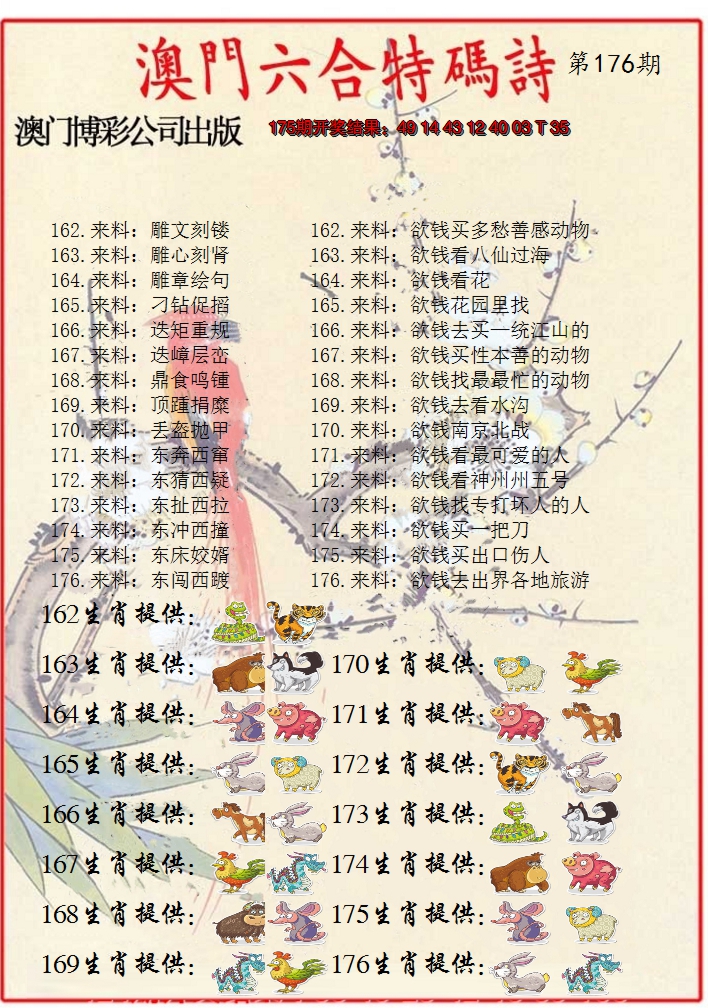 澳門六合特碼詩 第176期
澳门博彩公司出版 175期开奖结果：49 14 43 12 40 03 T 35
162.来料：雕文刻镂 162.来料：欲钱买多愁善感动物
163.来料：雕心刻肾 163.来料：欲钱看八仙过海
164.来料：雕章绘句 164.来料：欲钱看花
165.来料：刁钻促掐 165.来料：欲钱花园里找
166.来料：迭矩重规 166.来料：欲钱去买一统江山的
167.来料：迭嶂层峦 167.来料：欲钱买性本善的动物
168.来料：鼎食鸣锺 168.来料：欲钱找最最忙的动物
169.来料：顶踵捐糜 169.来料：欲钱去看水沟
170.来料：丢盔抛甲 170.来料：欲钱南京北战
171.来料：东奔西窜 171.来料：欲钱看最可爱的人
172.来料：东猜西疑 172.来料：欲钱看神州州五号
173.来料：东扯西拉 173.来料：欲钱找专打坏人的人
174.来料：东冲西撞 174.来料：欲钱买一把刀
175.来料：东床姣婿 175.来料：欲钱买出口伤人
176.来料：东闯西踱 176.来料：欲钱去出界各地旅游
162生肖提供：
163生肖提供： 170生肖提供：
164生肖提供： 171生肖提供：
165生肖提供： 172生肖提供：
166生肖提供： 173生肖提供：
167生肖提供： 174生肖提供：
168生肖提供： 175生肖提供：
169生肖提供： 176生肖提供：